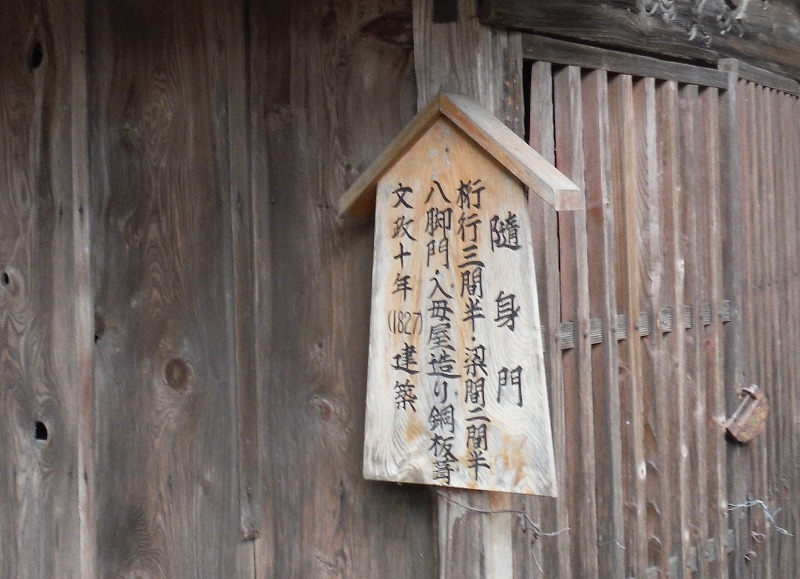 隨身門
桁行三間半・梁間二間半
八脚門・入母屋造り銅板葺
文政十年(1827)建築